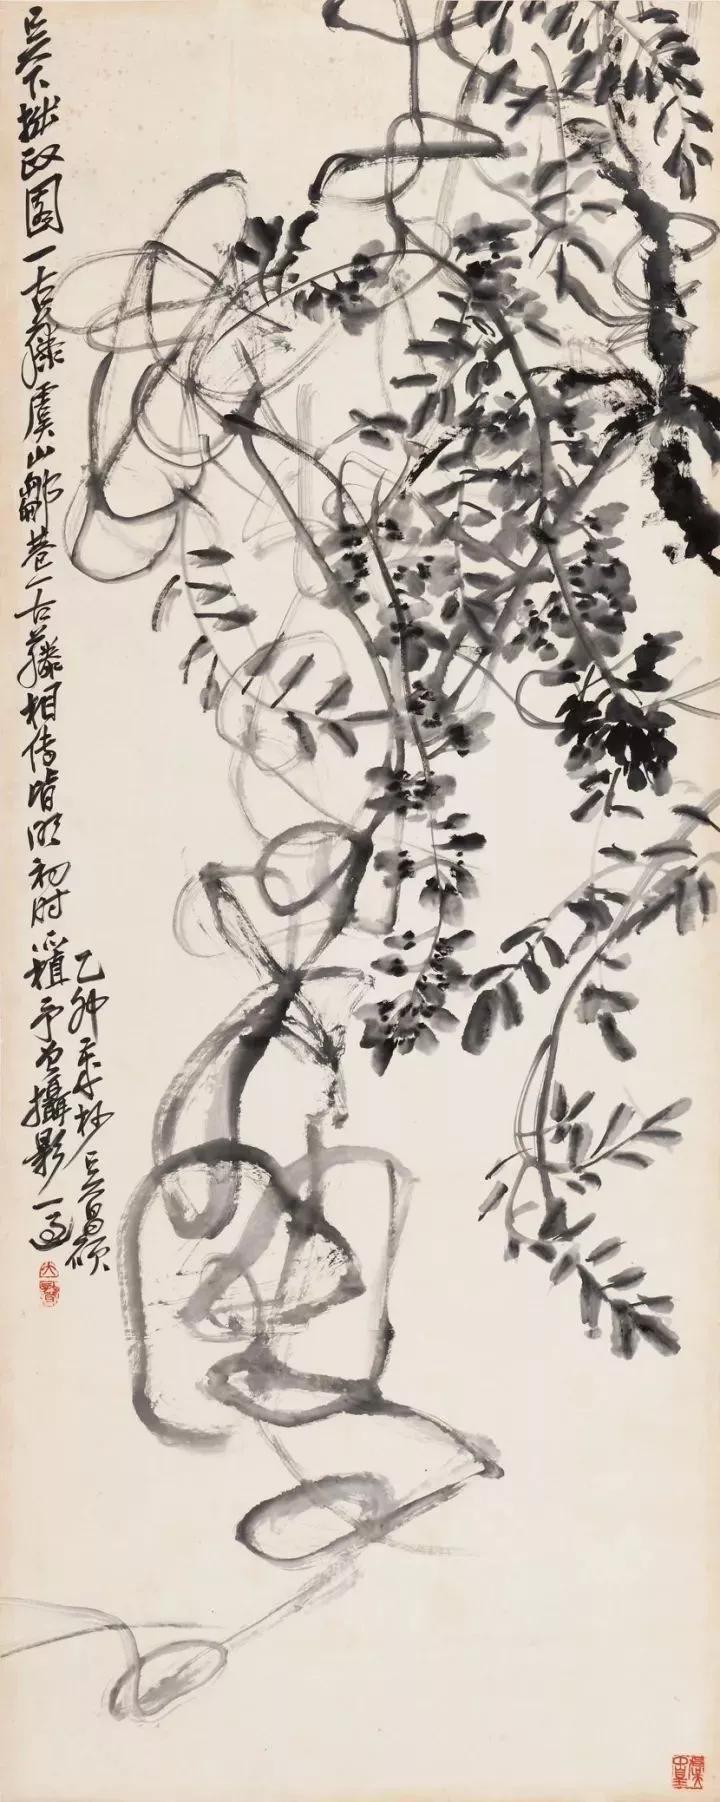 吴下拙政园一古藤虞山酃巷一古藤相传皆明初时所植予曾摄影一过
乙卯秋杪吴昌硕